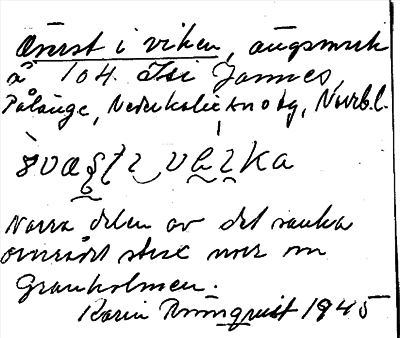 Överst i viken, ängsmark
å 104. Isi Jannes,
Pålänge, Nederkalix sn o tg, Norrb.l.
Norra delen av det sanka
området strax norr om
Granholmen.
Karin Rönnquist 1945